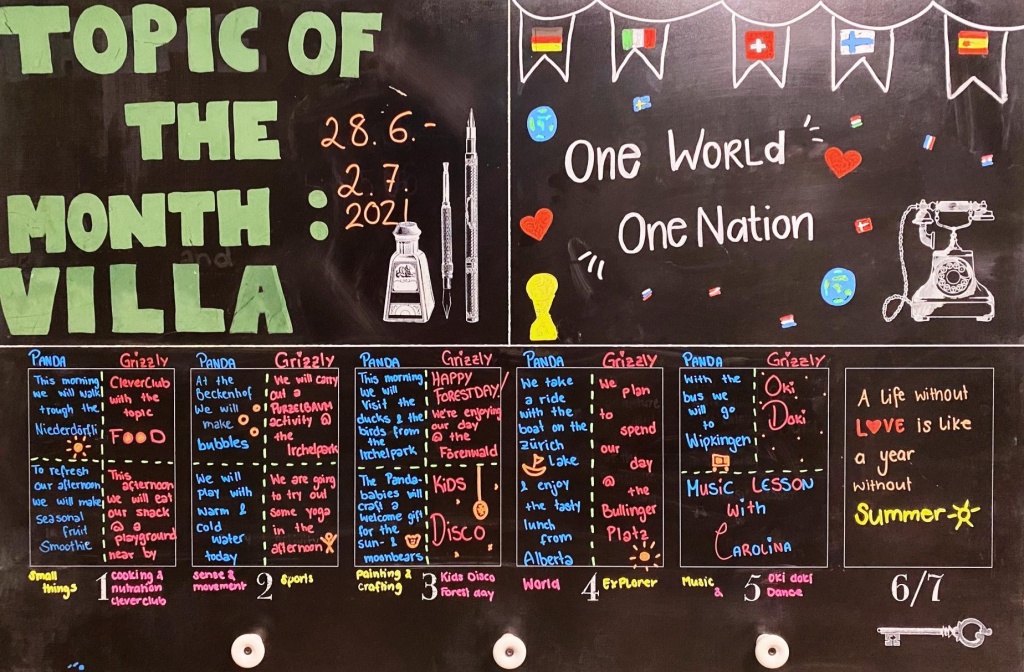 TOPIC OF
THE
MONTH :
VILLA
28. 6. -
2. 7.
2021
and
One WORLd
One Nation
PANDA
This morning
we will walk
trough the
Niederdörfli
To refresh
our afternoon
we will make
seasonal
fruit
Smoothie
Grizzly
CleverClub
with the
topic
FOOD
This
afternoon
we will eat
our snack
@ a
playground
near by
small
things
1
cooking &
nutration
cleverclub
PANDA
At the
Beckenhof
We will
make
bubbles
We will
play with
warm &
cold
water
today
Grizzly
We will carry
out a
PURZELBAUM
activity @
the
Irchelpark
We are going
to try out
some yoga
in the
afternoon
sense &
movement
2
Sports
PANDA
This morning
we will
visit the
ducks & the
birds from
the
Irchelpark
The Panda-
babies will
craft a
welcome gift
for the
sun- &
moonbears
Grizzly
HAPPY
FORESTDAY!
We're enjoying
our day
@ the
Förenwald
KiDS
DISCO
painting &
crafting
3
Kids Disco
Forest day
PANDA
We take
a ride
with the
boat on the
Zürich
Lake
& enjoy
the tasty
lunch
from
Alberta
Grizzly
We
plan
to
spend
our
day
@
the
Bullinger
Platz
World
4
ExPlorer
PANDA
With the
bus we
will go
to
Wipkingen
Grizzly
Oki
Doki
MUSiC LESSON
with
CAROLiNA
Music
&
5
oki doki
Dance
A Life without
LOVE is Like
a year
without
Summer
6/7